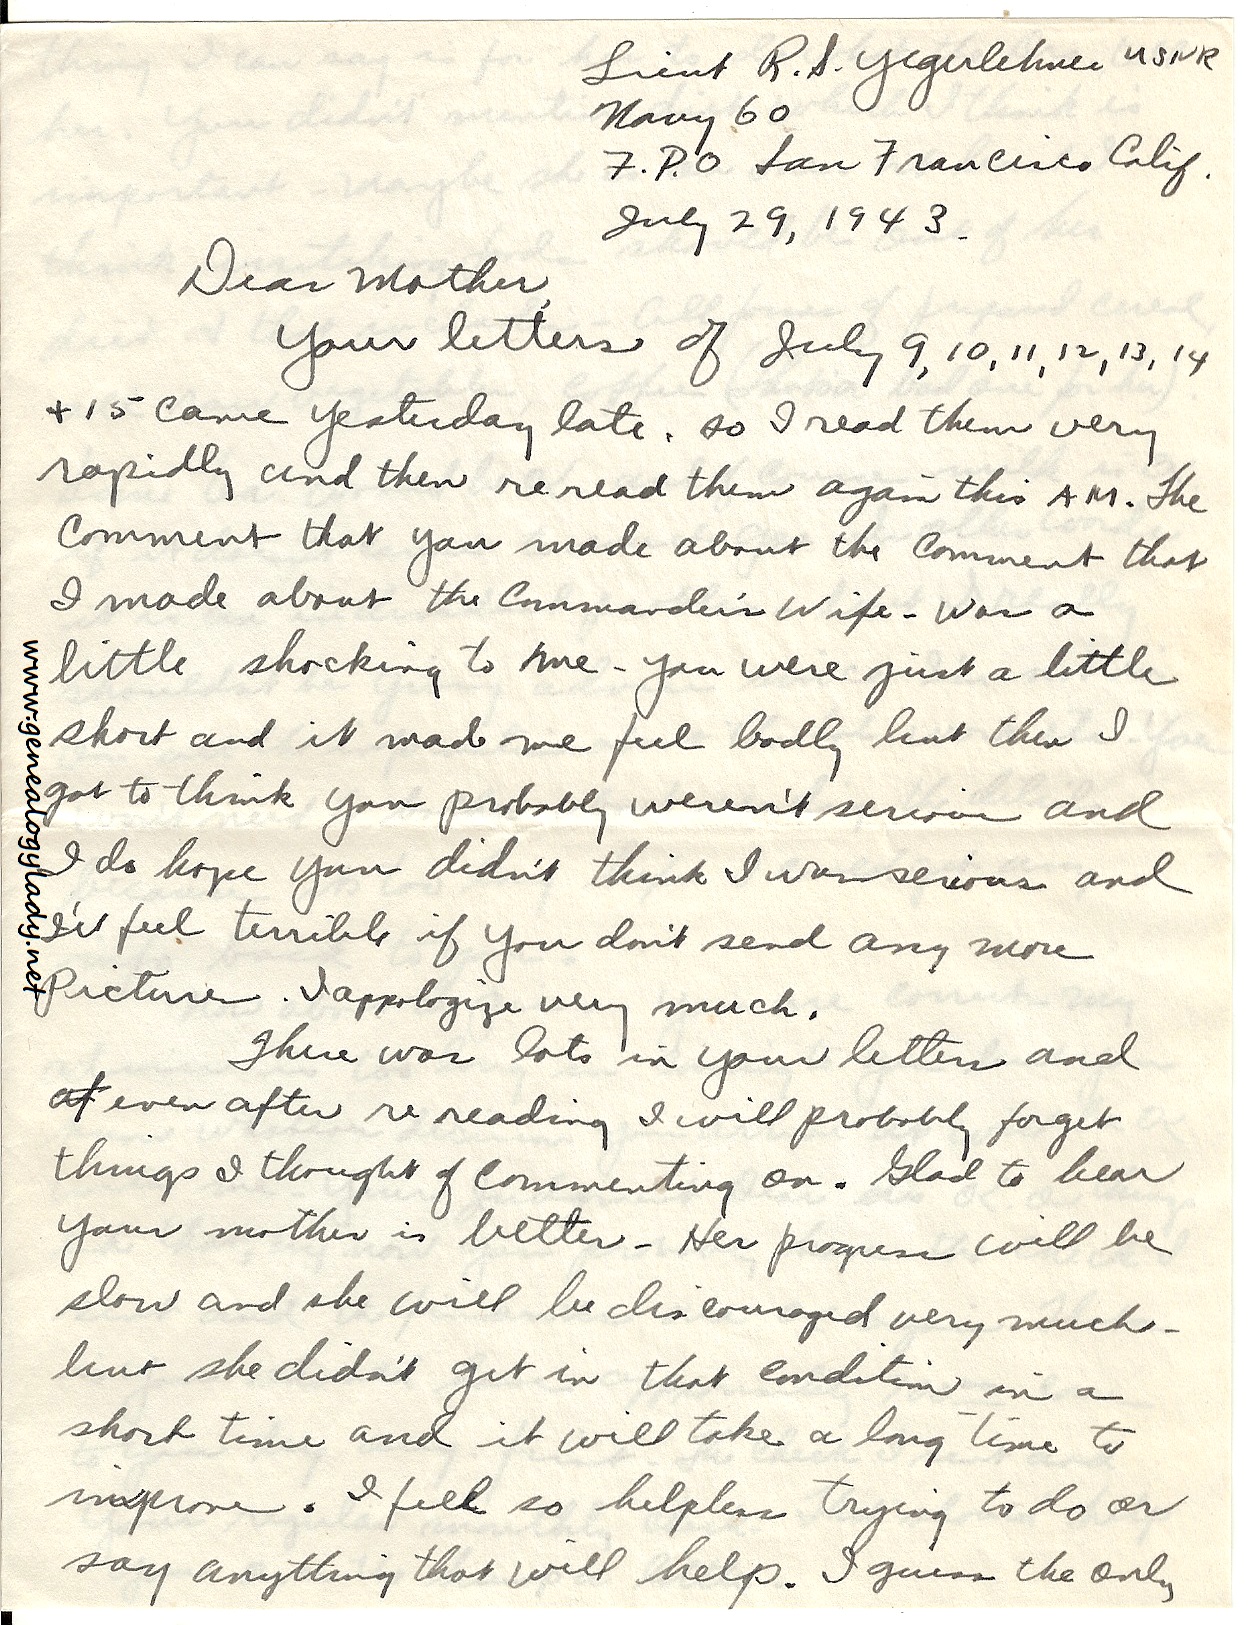 Lieut R.S. Yegerlehner USNR
Navy 60
F.P.O San Francisco Calif.
July 29, 1943.
Dear Mother,
Your letters of July 9, 10, 11, 12, 13, 14
+ 15 came yesterday late. so I read them very
rapidly and then reread them again this AM. The
comment that you made about the comment that
I made about the Commander's Wife - was a
little shocking to me - you were just a little
short and it made me feel badly but then I
got to think you probably weren't serious and
I do hope you didn't think I was serious and
I'd feel terrible if you don't send any more
Pictures. I appologize very much.
There was lots in your letters and
at even after re reading I will probably forget
things I thought of commenting on. Glad to hear
your mother is better - Her progress will be
slow and she will be discouraged very much -
but she didn't get in that condition in a
short time and it will take a long time to
improve. I feel so helpless trying to do or
say anything that will help. I guess the only
www.genealogylady.net